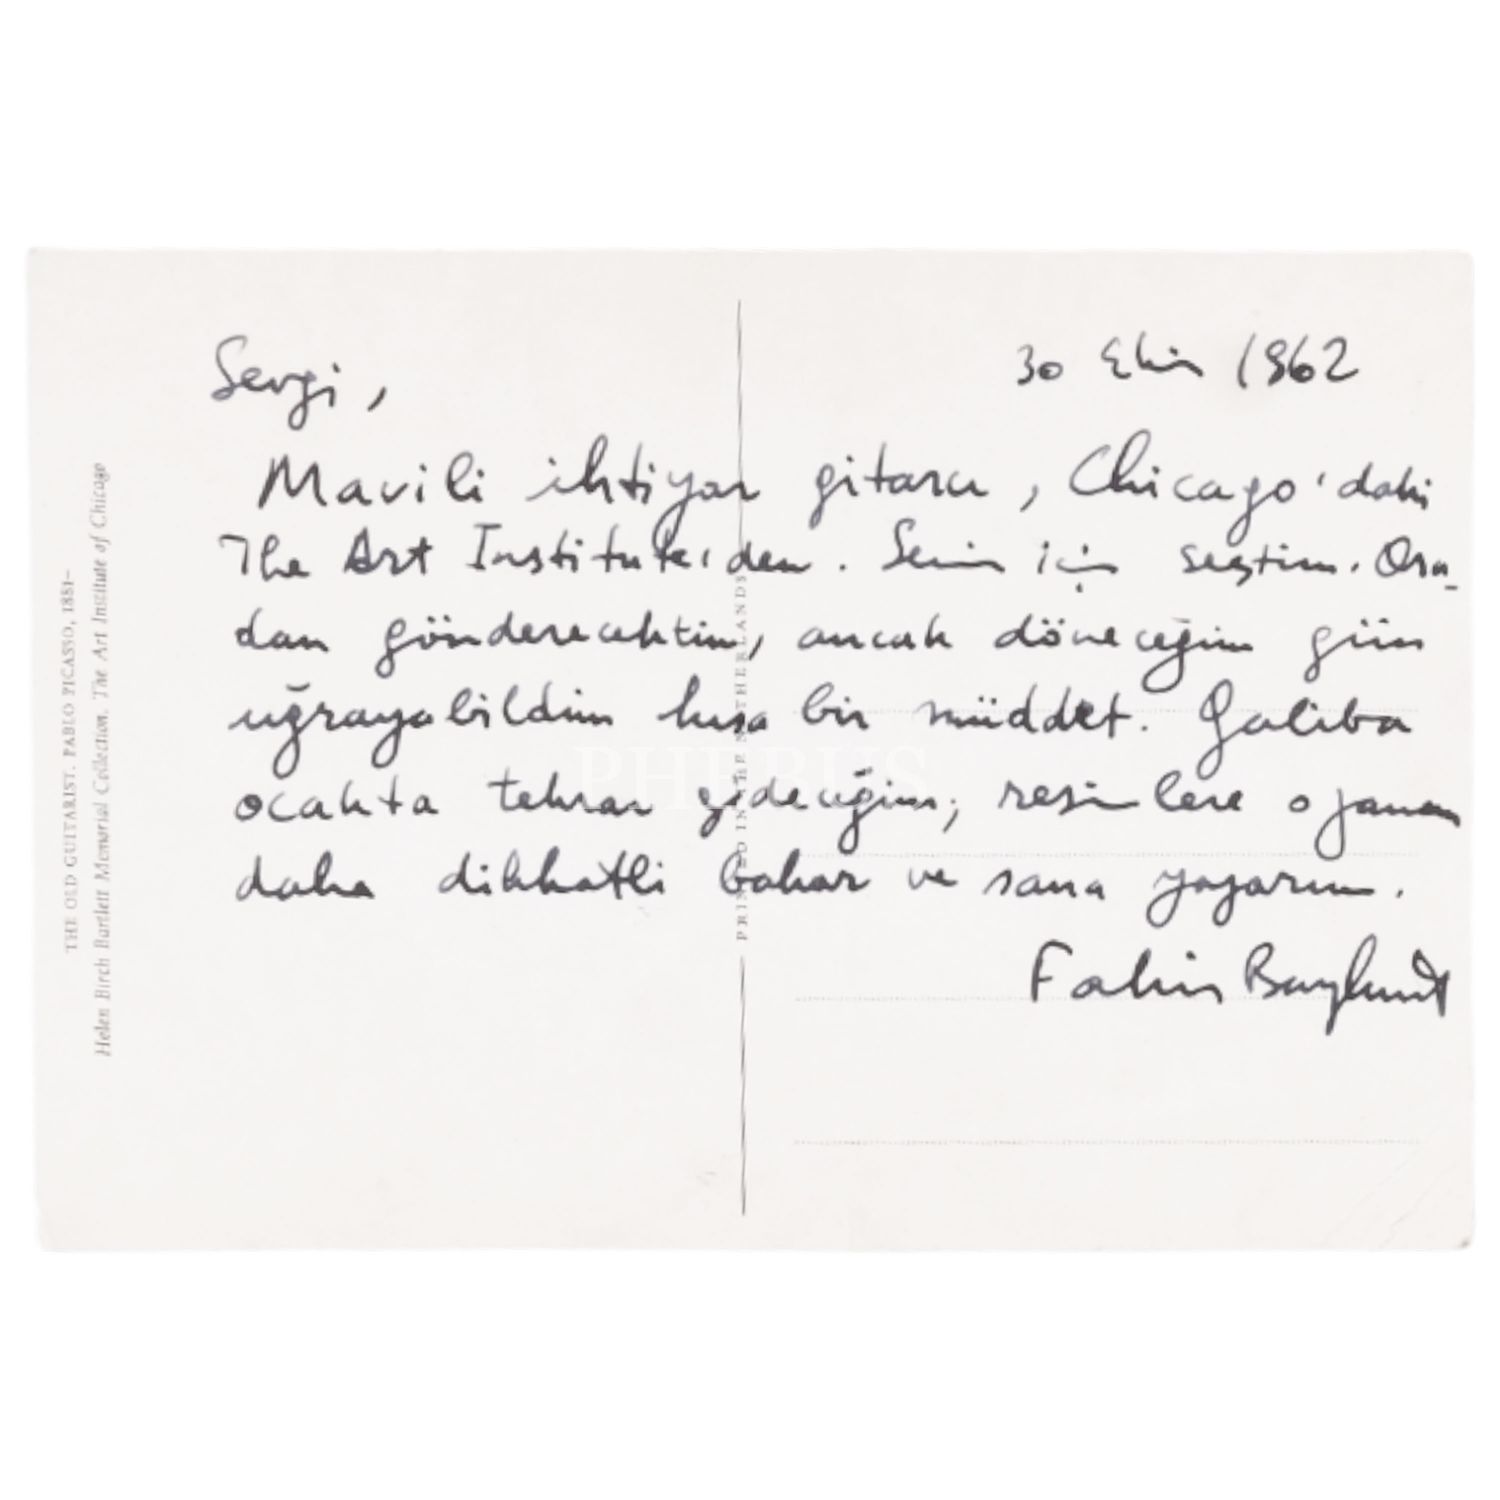 Sevgi,
30 Ekim 1962
Mavili ihtiyar gitarcı, Chicago'daki
The Art Institute'den. Senin için seçtim. Ora-
dan gönderecektim, ancak döneceğim gün
uğrayabildim kısa bir müddet. Galiba
ocakta tekrar gideceğim; resimlere o zaman
daha dikkatli bakar ve sana yazarım.
Fahir Baykurt
THE OLD GUITARIST. PABLO PICASSO, 1881–
Helen Birch Bartlett Memorial Collection. The Art Institute of Chicago
PRINTED IN THE NETHERLANDS
PHEBUS